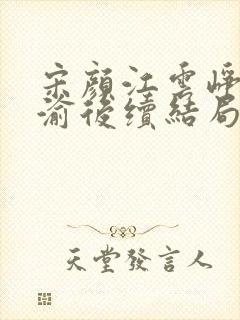 宋顏江雲崢
渝後續結局
天堂發言人